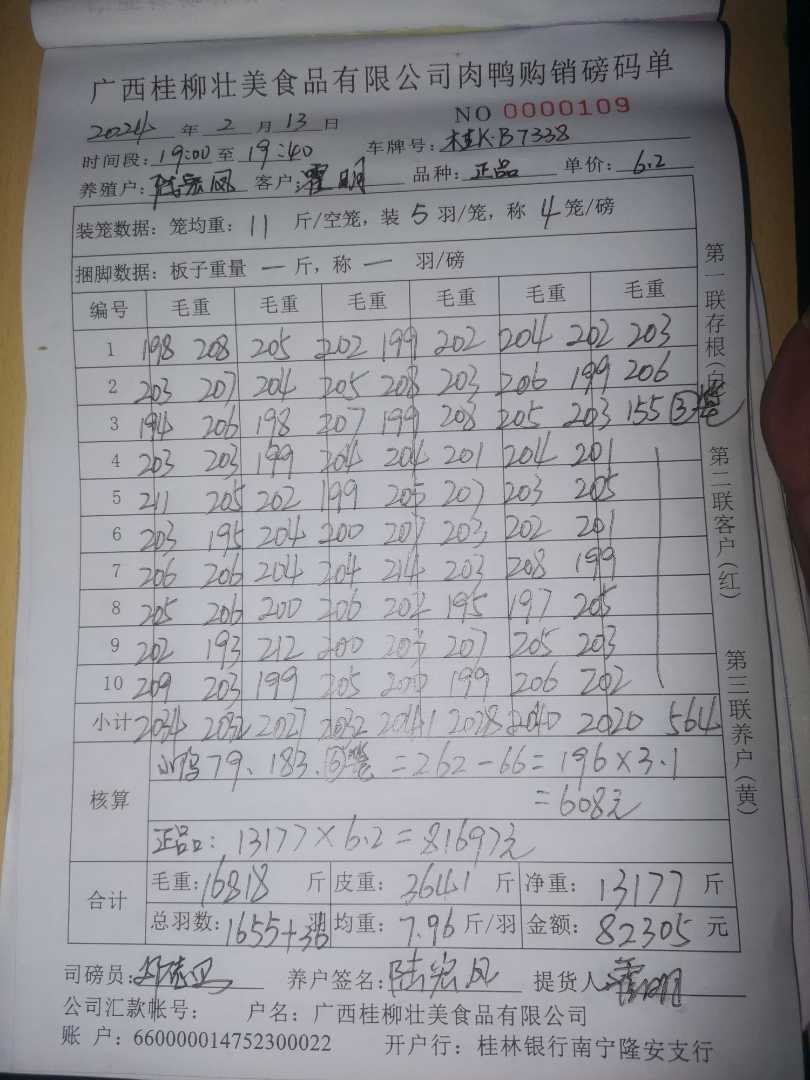 广西桂柳壮美食品有限公司肉鸭购销磅码单
2024 年 2 月 13 日 NO 0000109
时间段：19:00 至 19:40 车牌号：桂K·B7338
养殖户：陆宏凤 客户：霍明 品种：正品 单价：6.2
装笼数据：笼均重：11 斤/空笼，装 5 羽/笼，称 4 笼/磅
捆脚数据：板子重量 一 斤，称 一 羽/磅
编号 毛重 毛重 毛重 毛重 毛重 毛重
1 198 208 205 202 199 202 204 202 203
2 203 207 204 205 208 203 206 199 206
3 194 206 198 207 199 208 205 203 155 ③笼
4 203 203 199 204 204 201 204 201
5 211 205 202 199 205 207 203 205
6 203 195 204 200 207 203 202 201
7 206 206 204 204 214 203 208 199
8 205 206 200 206 202 195 197 205
9 202 193 212 200 203 207 205 203
10 209 203 199 205 200 199 206 202
小计 2034 2032 2027 2032 2041 2028 2040 2020 564
核算
小鸭 79、183. 笼 = 262 - 66 = 196 × 3.1
= 608元
正品：13177 × 6.2 = 81697元
合计
毛重：16818 斤 皮重：3641 斤 净重：13177 斤
总羽数：1655+36 羽 均重：7.96 斤/羽 金额：82305 元
司磅员： 养户签名：陆宏凤 提货人 霍明
公司汇款帐号： 户名：广西桂柳壮美食品有限公司
账 户：660000014752300022 开户行：桂林银行南宁隆安支行
第一联存根(白
第二联客户(红)
第三联养户(黄)